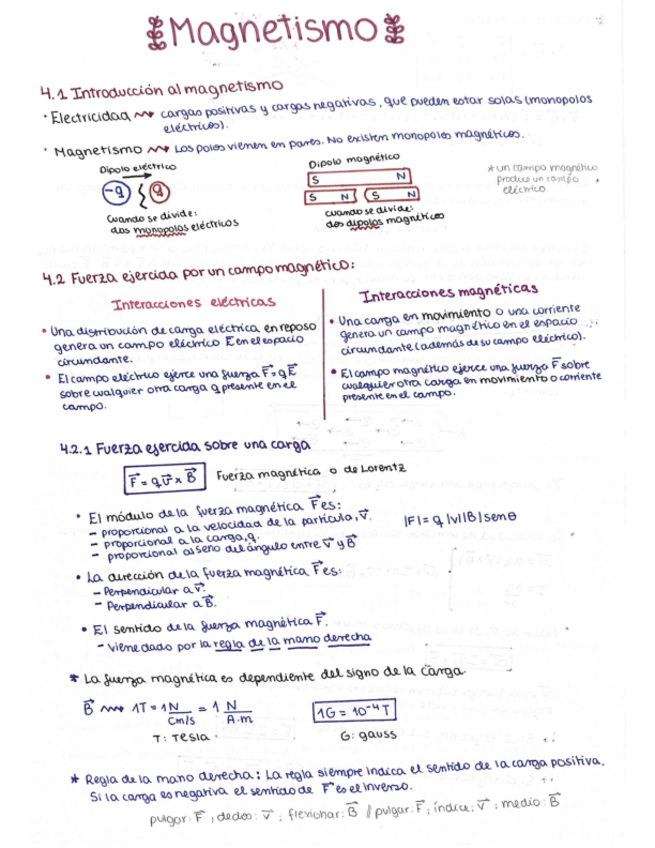 Magnetismo
4.1 Introducción al magnetismo
· Electricidad ⇝ cargas positivas y cargas negativas, que pueden estar solas (monopolos
eléctricos).
· Magnetismo ⇝ Los polos vienen en pares. No existen monopolos magnéticos.
Dipolo eléctrico
-q q
Cuando se divide:
dos monopolos eléctricos
Dipolo magnético
S N
S N S N
cuando se divide:
dos dipolos magnéticos
* un campo magnético
produce un campo
eléctrico.
4.2 Fuerza ejercida por un campo magnético:
Interacciones eléctricas
• Una distribución de carga eléctrica en reposo
genera un campo eléctrico E en el espacio
circundante.
• El campo eléctrico ejerce una fuerza F⃗=qE⃗
sobre cualquier otra carga q presente en el
campo.
Interacciones magnéticas
• Una carga en movimiento o una corriente
genera un campo magnético en el espacio
circundante (además de su campo eléctrico).
• El campo magnético ejerce una fuerza F⃗ sobre
cualquier otra carga en movimiento o corriente
presente en el campo.
4.2.1 Fuerza ejercida sobre una carga
F⃗ = q v⃗ x B⃗ Fuerza magnética o de Lorentz
• El módulo de la fuerza magnética F⃗ es:
- proporcional a la velocidad de la partícula, v⃗.
- proporcional a la carga, q.
- proporcional al seno del ángulo entre v⃗ y B⃗
|F| = q |v||B| senθ
• La dirección de la fuerza magnética F⃗ es:
- Perpendicular a v⃗.
- Perpendicular a B⃗.
• El sentido de la fuerza magnética F⃗.
- Viene dado por la regla de la mano derecha
* La fuerza magnética es dependiente del signo de la carga.
B⃗ ⇝ 1T = 1 N/Cm/s = 1 N/A·m
1G = 10⁻⁴ T
T: Tesla
G: gauss
* Regla de la mano derecha: La regla siempre indica el sentido de la carga positiva.
Si la carga es negativa el sentido de F⃗ es el inverso.
pulgar: F⃗ ; dedos: v⃗ ; flexionar: B⃗ // pulgar: F⃗ ; índice: v⃗ ; medio: B⃗